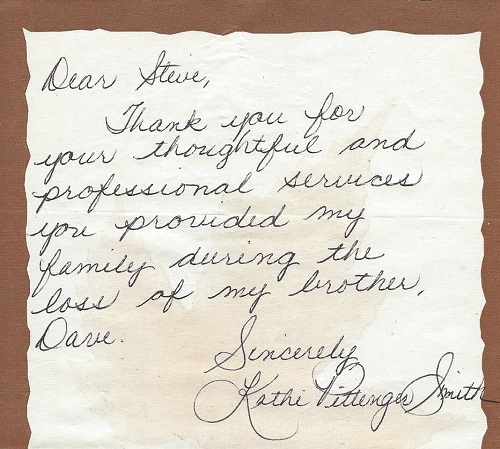 Dear Steve,
Thank you for
your thoughtful and
professional services
you provided my
family during the
loss of my brother,
Dave.
Sincerely
Kathi Pittenger Smith